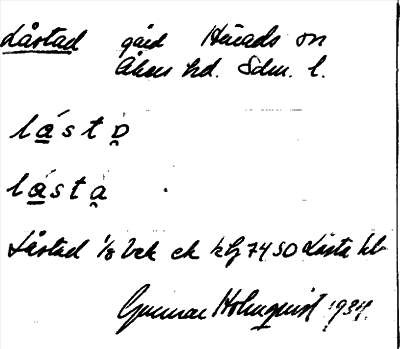 Låstad gård Härads sn
Åkers hd. Sdm. l.
lásto
lásta
Låstad 1/8 ek 7450 Låsta
Gunnar Holmquist 1934.